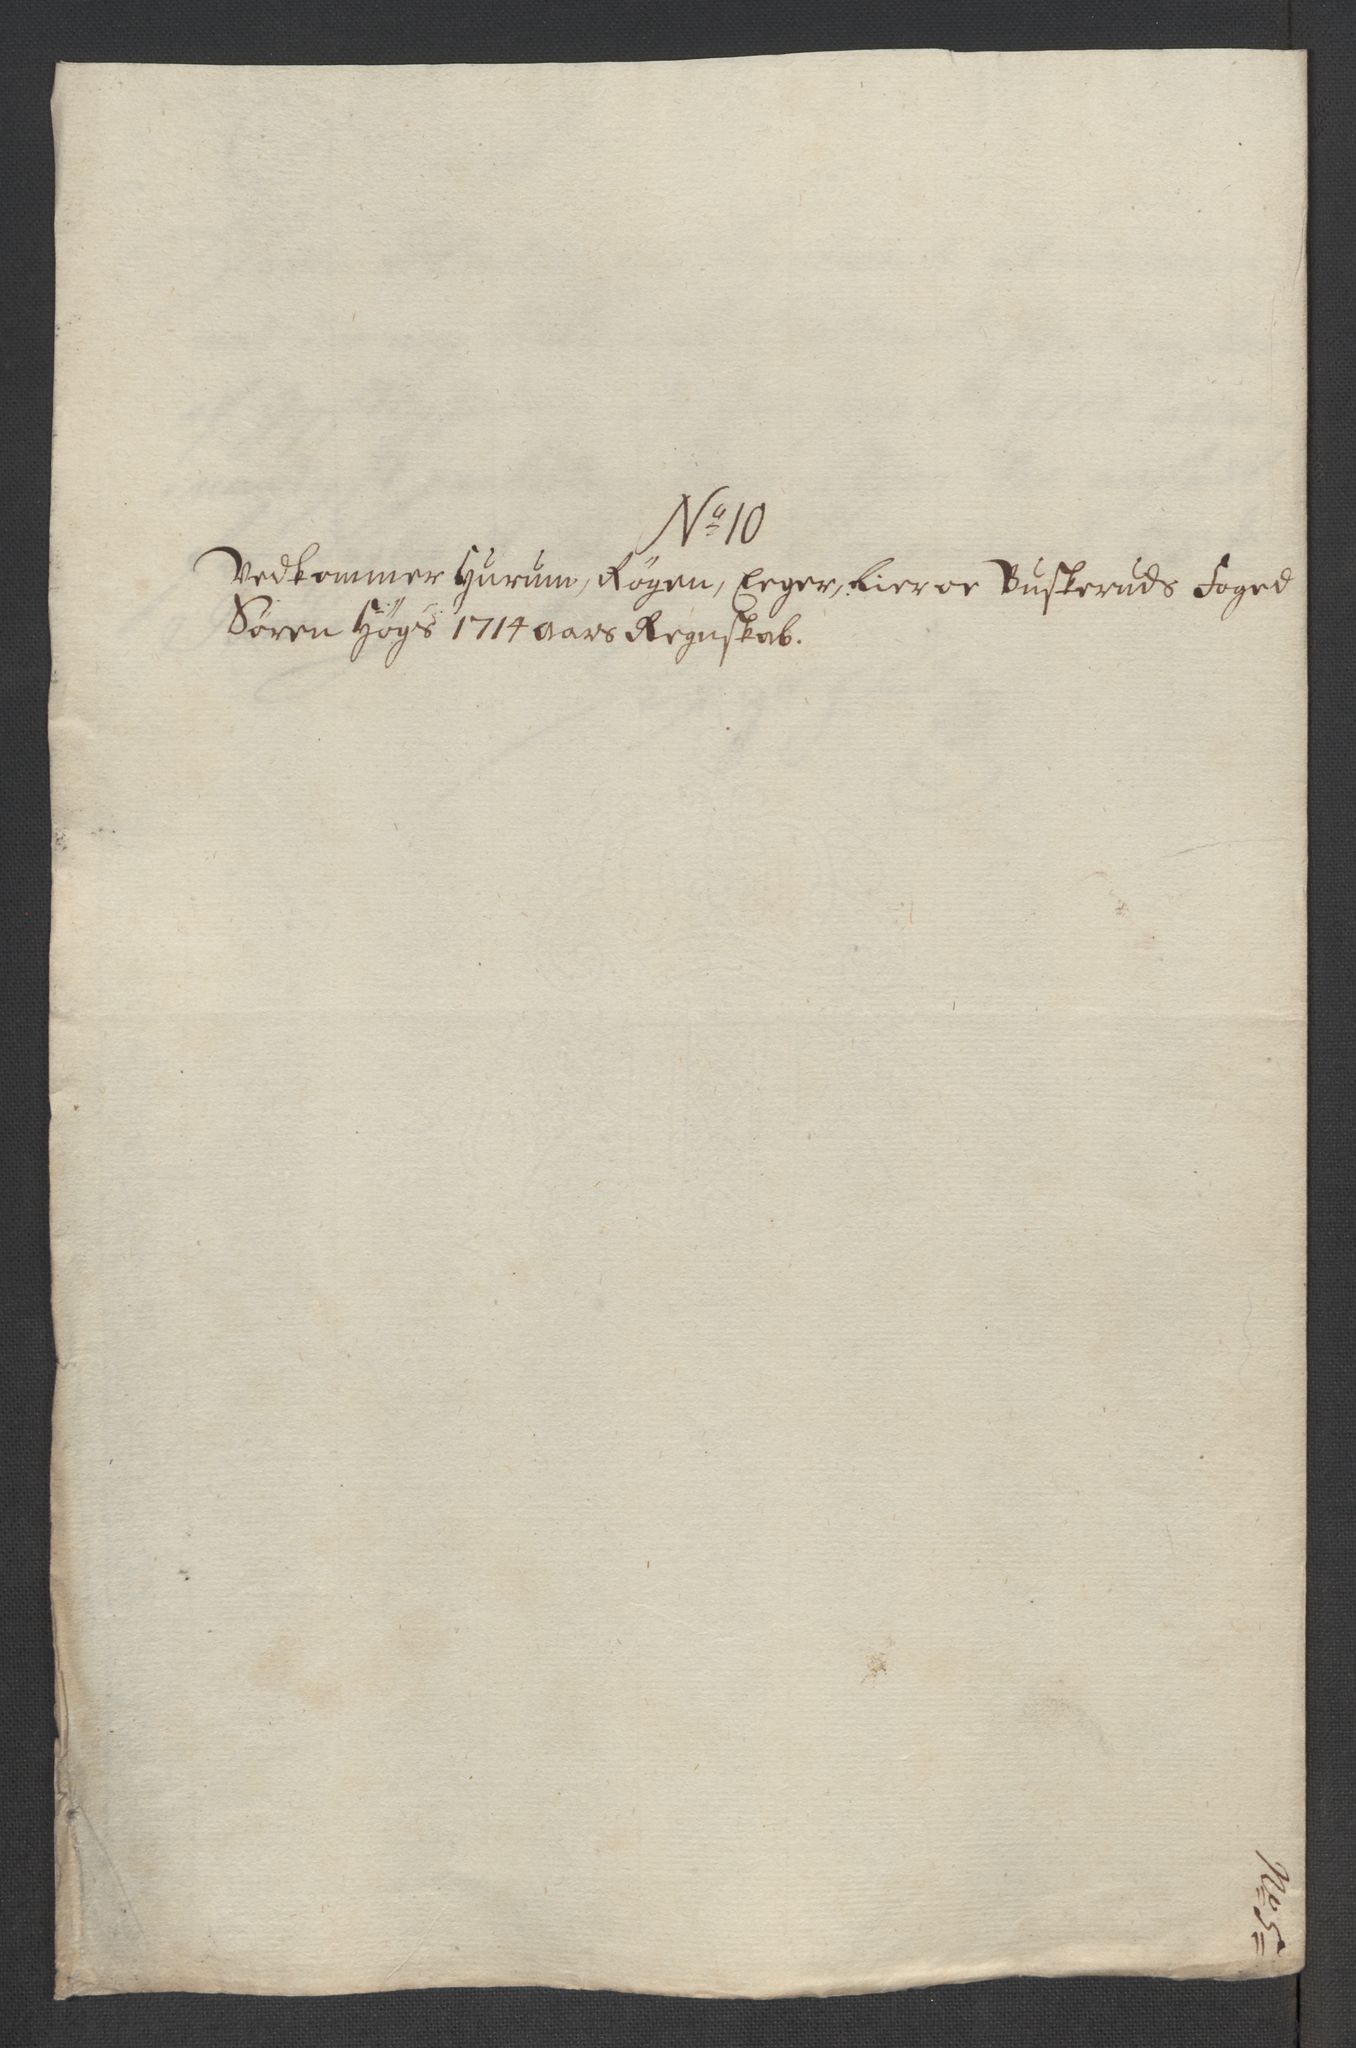 No 10
Vedkommer Hurum, Røgen, Eeger, Lier oc Buskeruds Foged
Søren Høgs 1714 aars Regnskab.
No 5